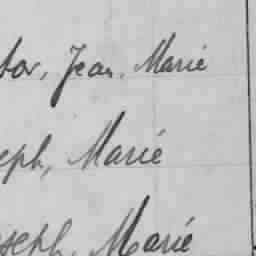 bor, Jean, Marie
eph, Marie
oseph, Marie